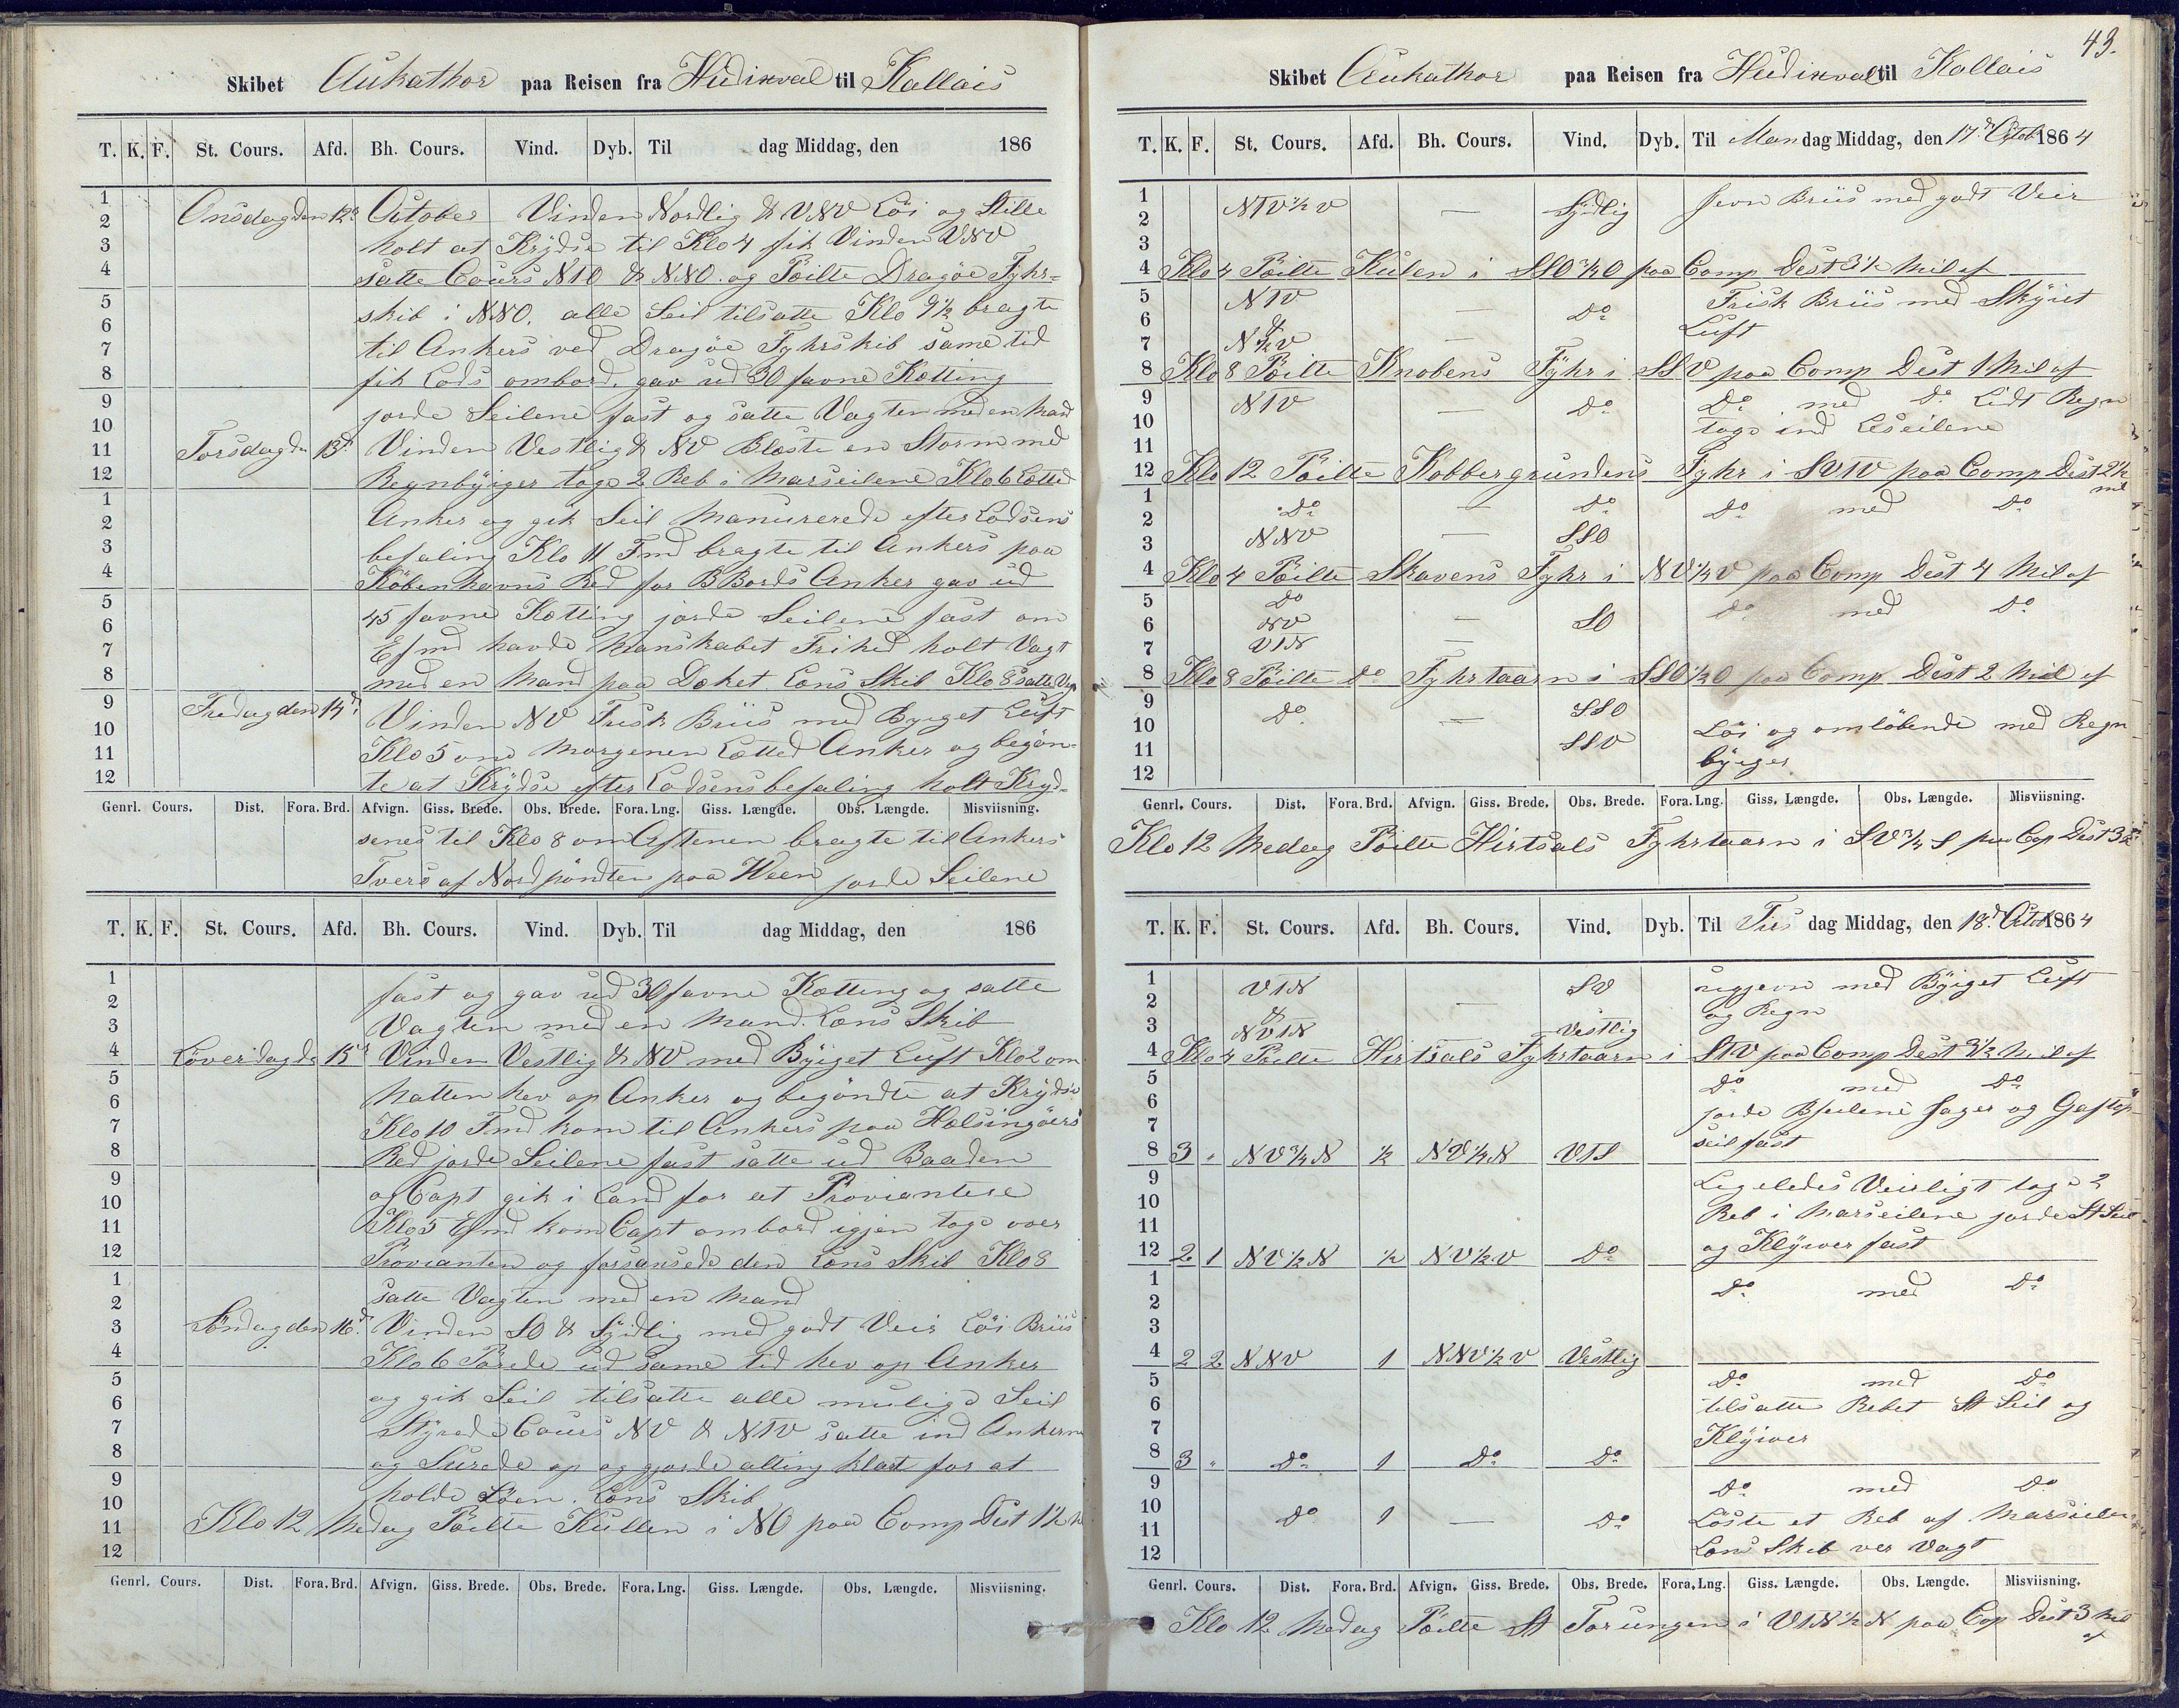 Skibet Aukathor paa Reisen fra Hudixval til Kallais
T. K. F. St. Cours. Afd. Bh. Cours. Vind. Dyb. Til dag Middag, den 186
Onsdag den 12te October Vinden Nordlig & VNV Löi og Stille
holt at Krÿdse til Klo 4 fik Vinden VNV
satte Cours NTO & NNO. og Pöilte Dragöe Fyhr-
skib i NNO. alle Seil tilsatte Klo 9½ bragte
til Ankers ved Dragöe Fyhrskib same tid
fik Lods ombord. gav ud 30 favne Kætting
jorde Seilene fast og satte Vagten med en Mand
Torsdag dn 13d Vinden Vestlig & NV Blæste en Storm med
Regnbÿiger toge 2 Reb i Marseilene Klo 6 Lætted
Anker og gik Seil Manurerede efter Lodsens
befaling Klo 11 Fmd bragte til Ankers paa
Köbenhavns Red for BBords Anker gav ud
45 favne Kætting jorde Seilene fast om
Efmd havde Manskabet Frihed holt Vagt
med en Mand paa Dæket Læns Skib Klo 8 satte Vagt
Fredag den 14d. Vinden NV Frisk Briis med Byiget Luft
Klo 5 om Morgenen Lætted Anker og begön-
te at Krÿdse efter Lodsens befaling holt Kryd-
Genrl. Cours. Dist. Fora. Brd. Afvign. Giss. Brede. Obs. Brede. Fora. Lng. Giss. Længde. Obs. Længde. Misviisning.
senes til Klo 8 om Aftenen bragte til Ankers
Tvers af Nordpöndten paa Hveen jorde Seilene
T. K. F. St. Cours. Afd. Bh. Cours. Vind. Dyb. Til dag Middag, den 186
fast og gav ud 30 favne Kætting og satte
Vagten med en Mand. Læns Skib
Löverdag dn 15d Vinden Vestlig & NV med Bÿiget Luft Klo 2 om
Natten hev op Anker og begöndte at Krÿdse
Klo 10 Fmd kom til Ankers paa Hælsingöers
Red jorde Seilene fast satte ud Baaden
og Capt gik i Land for at Proviantere
Klo 5 Efmd kom Capt ombord igjen toge over
Provianten og forsansede den Læns Skib Klo 8
satte Vagten med en Mand
Söndag den 16d. Vinden SO & Sÿdlig med godt Veir Löi Briis
Klo 6 Purede ud same tid hev op Anker
og gik Seil tilsatte alle mulige Seil
Stÿrede Cours NV & NTV satte ind Ankerne
og Surede op og gjorde alting klart for at
holde Söen. Læns Skib
Klo 12 Medag Pöilte Kullen i NO paa Comp Dist 1½ M
Genrl. Cours. Dist. Fora. Brd. Afvign. Giss. Brede. Obs. Brede. Fora. Lng. Giss. Længde. Obs. Længde. Misviisning.
43.
Skibet Aukathor paa Reisen fra Hudixval til Kallais
T. K. F. St. Cours. Afd. Bh. Cours. Vind. Dyb. Til Mandag Middag, den 17d Octob 1864
NTV½V — Sÿdlig Jevn Briis med godt Veir
Klo 4 Pöilte Kulen i SSO¾O paa Comp Dest 3½ Mil af
NTV — Do Frisk Briis med Skÿiet
& N½V — Luft
Klo 8 Pöilte Knobens Fÿhr i SSV paa Comp Dest 1 Mil af
NTV — Do Do med Do Lidt Regn
toge ind Leseilene
Klo 12 Pöilte Kobbergrundens Fyhr i SVTV paa Comp Dest 2½
mil
Do — Do Do med Do
NNV — SSO
Klo 4 Pöilte Skavens Fyhr i NV¼V paa Comp Dest 4 Mil af
Do Do med Do
NV — SO
VTN —
Klo 8 Pöilte Do Fyhrtaarn i SSO½O paa Comp Dest 2 Mil af
Do — SSO
SSV Löi og omlöbende med Regn
byiger
Genrl. Cours. Dist. Fora. Brd. Afvign. Giss. Brede. Obs. Brede. Fora. Lng. Giss. Længde. Obs. Længde. Misviisning.
Klo 12 Medag Pöilte Hirtsals Fyhrtaarn i SV¾S paa Cop Dest 3
T. K. F. St. Cours. Afd. Bh. Cours. Vind. Dyb. Til Tirs dag Middag, den 18d. Octob 1864
VTN — SV ugjevn med Bÿiget Luft
& og Regn
NVTN Vestlig
Klo 4 Pöilte Hirtsals Fyhrtaarn i STV paa Comp Dest 3½ Mil af
Do med Do
jorde Bseilene Jager og Gaftop
8 3 „ NV¾N ½ NV¼N VTS seil fast
Legeledes Veirligt toge 2
Reb i Marseilene jorde St Seil
12 2 1 NV½N ½ NV½V Do og Klÿwer fast
Do med Do
4 2 2 NNV 1 NNV½V Vestlig
Do med Do
tilsatte Rebet St Seil og
Klÿwer
8 3 „ Do 1 Do Do
Do med Do
Do 1 — Do Löste et Reb af Marseilene
Læns Skib ver Vagt
Genrl. Cours. Dist. Fora. Brd. Afvign. Giss. Brede. Obs. Brede. Fora. Lng. Giss. Længde. Obs. Længde. Misviisning.
Klo 12 Medag Pöilte St Torungen i VTN½N paa Cop Dest 3 Mil
af